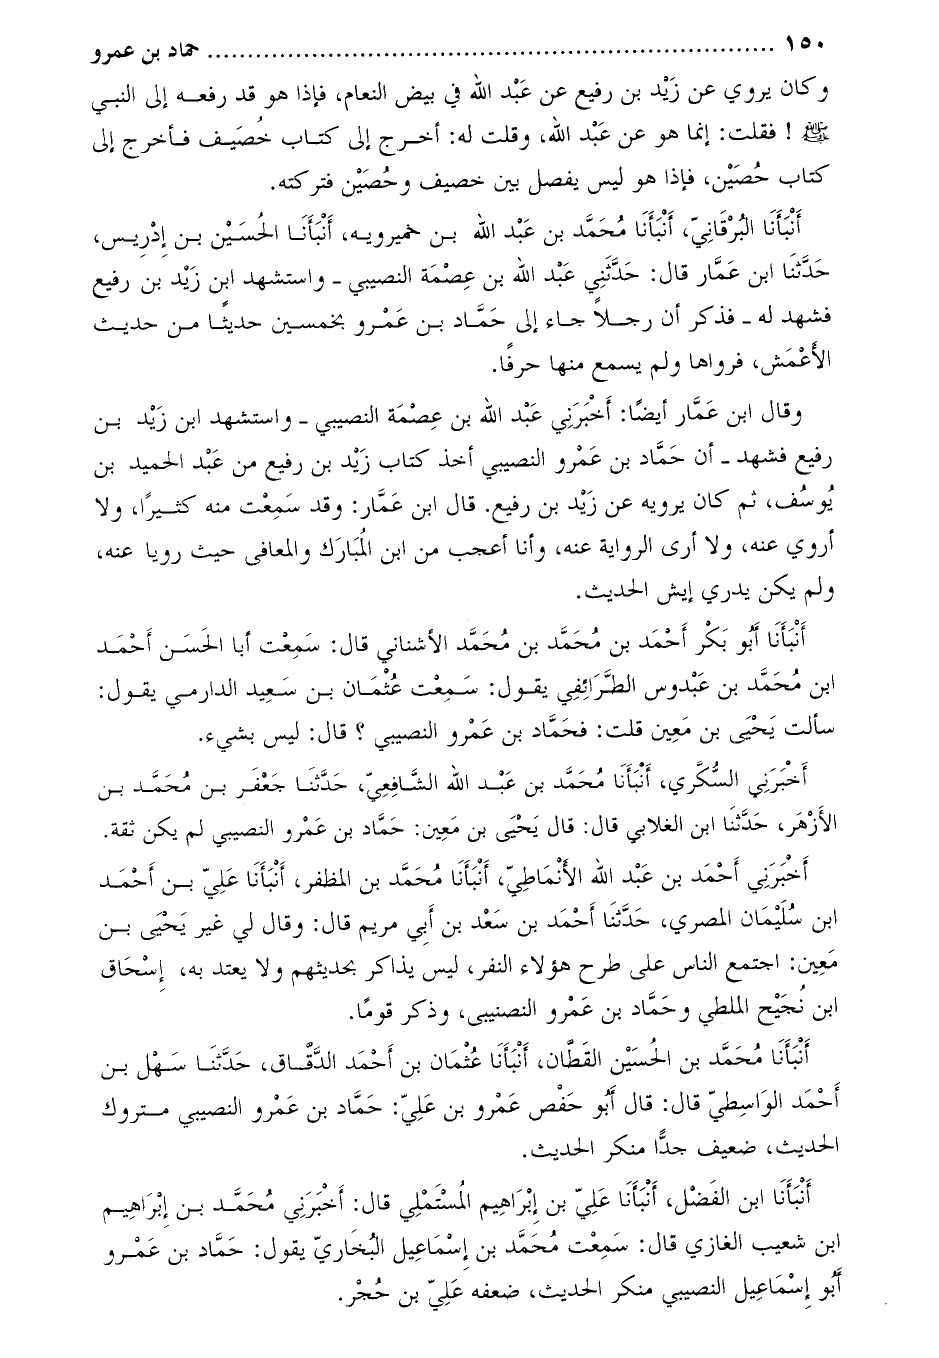 ١٥٠ ........................................................................ حماد بن عمرو
وكان يروي عن زَيْد بن رفيع عن عَبْد الله في بيض النعام، فإذا هو قد رفعه إلى النبي
ﷺ ! فقلت: إنما هو عن عَبْد الله، وقلت له: أخرج إلى كتاب خُصَيف فأخرج إلى
كتاب حُصَيْن، فإذا هو ليس يفصل بين خصيف وحُصَيْن فتركته.
أَنْبَأَنَا البُرْقَانِيّ، أَنْبَأَنَا مُحَمَّد بن عَبْد الله بن خميرويه، أَنْبَأَنَا الحُسَيْن بن إدْرِيس،
حَدَّثَنَا ابن عَمَّار قال: حَدَّثَنِي عَبْد الله بن عِصْمَة النصيبي ـ واستشهد ابن زَيْد بن رفيع
فشهد له ـ فذكر أن رجلاً جاء إلى حَمَّاد بن عَمْرو بخمسين حديثًا من حديث
الأَعْمَش، فرواها ولم يسمع منها حرفًا.
وقال ابن عَمَّار أيضًا: أَخْبَرَنِي عَبْد الله بن عِصْمَة النصيبي ـ واستشهد ابن زَيْد بن
رفيع فشهد ـ أن حَمَّاد بن عَمْرو النصيبي أخذ كتاب زَيْد بن رفيع من عَبْد الحميد بن
يُوسُف، ثم كان يرويه عن زَيْد بن رفيع. قال ابن عَمَّار: وقد سَمِعْت منه كثيرًا، ولا
أروي عنه، ولا أرى الرواية عنه، وأنا أعجب من ابن المُبَارَك والمعافى حيث رويا عنه،
ولم يكن يدري إيش الحديث.
أَنْبَأَنَا أَبُو بَكْر أَحْمَد بن مُحَمَّد بن مُحَمَّد الأشناني قال: سَمِعْت أبا الحَسَن أَحْمَد
ابن مُحَمَّد بن عَبْدوس الطَّرَائِفِي يقول: سَمِعْت عُثْمَان بن سَعِيد الدارمي يقول:
سألت يَحْيَى بن مَعِين قلت: فحَمَّاد بن عَمْرو النصيبي ؟ قال: ليس بشيء.
أَخْبَرَنِي السُّكَّرِي، أَنْبَأَنَا مُحَمَّد بن عَبْد الله الشَّافِعِيّ، حَدَّثَنَا جَعْفَر بن مُحَمَّد بن
الأَزْهَر، حَدَّثَنَا ابن الغلابي قال: قال يَحْيَى بن مَعِين: حَمَّاد بن عَمْرو النصيبي لم يكن ثقة.
أَخْبَرَنِي أَحْمَد بن عَبْد الله الأَنْمَاطِيّ، أَنْبَأَنَا مُحَمَّد بن المظفر، أَنْبَأَنَا عَلِيّ بن أَحْمَد
ابن سُلَيْمَان المصري، حَدَّثَنَا أَحْمَد بن سَعْد بن أَبِي مريم قال: وقال لي غير يَحْيَى بن
مَعِين: اجتمع الناس على طرح هؤلاء النفر، ليس يذاكر بحديثهم ولا يعتد به، إِسْحَاق
ابن نُجَيْح الملطي وحَمَّاد بن عَمْرو النصنيبى، وذكر قومًا.
أَنْبَأَنَا مُحَمَّد بن الحُسَيْن القَطَّان، أَنْبَأَنَا عُثْمَان بن أَحْمَد الدَّقَّاق، حَدَّثَنَا سَهْل بن
أَحْمَد الوَاسِطِيّ قال: قال أَبُو حَفْص عَمْرو بن عَلِيّ: حَمَّاد بن عَمْرو النصيبي متروك
الحديث، ضعيف جدًّا منكر الحديث.
أَنْبَأَنَا ابن الفَضْل، أَنْبَأَنَا عَلِيّ بن إبْرَاهِيم المُسْتَمْلِي قال: أَخْبَرَنِي مُحَمَّد بن إبْرَاهِيم
ابن شعيب الغازي قال: سَمِعْت مُحَمَّد بن إسْمَاعِيل البُخَارِيّ يقول: حَمَّاد بن عَمْرو
أَبُو إسْمَاعِيل النصيبي منكر الحديث، ضعفه عَلِيّ بن حُجْر.